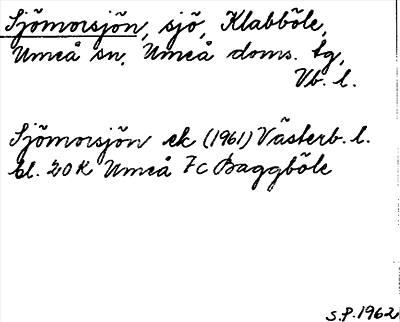 Sjömorsjön, sjö, Klabböle,
Umeå sn, Umeå doms. tg,
Vb. l.
Sjömorsjön ek (1961) Västerb. l.
bl. 20K Umeå 7c Baggböle
S.P. 1962